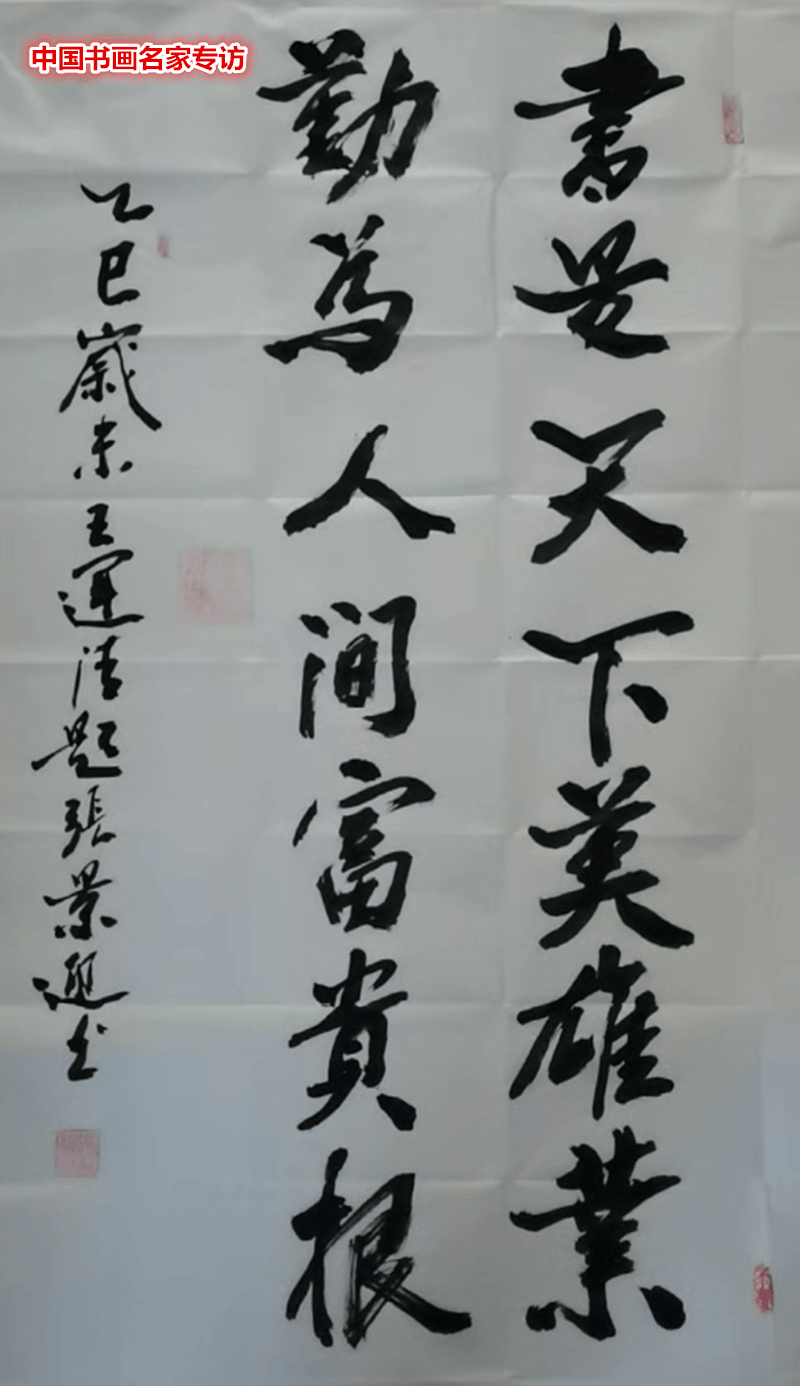 中国书画名家专访
書是天下英雄業
勤為人間富貴根
乙巳歲末王運清題張景遜书